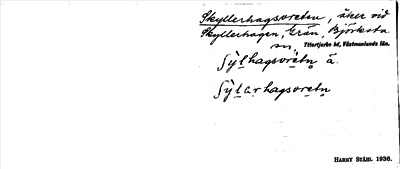 Skyllerhagsvreten, åker vid
Skyllerhagen, Grän, Björksta
sn, Yttertjurbo hd, Västmanlands län.
ʃỳlhagsvretn̥ å.
ʃỳlarhagsvretn̥
HARRY STÅHL 1936.